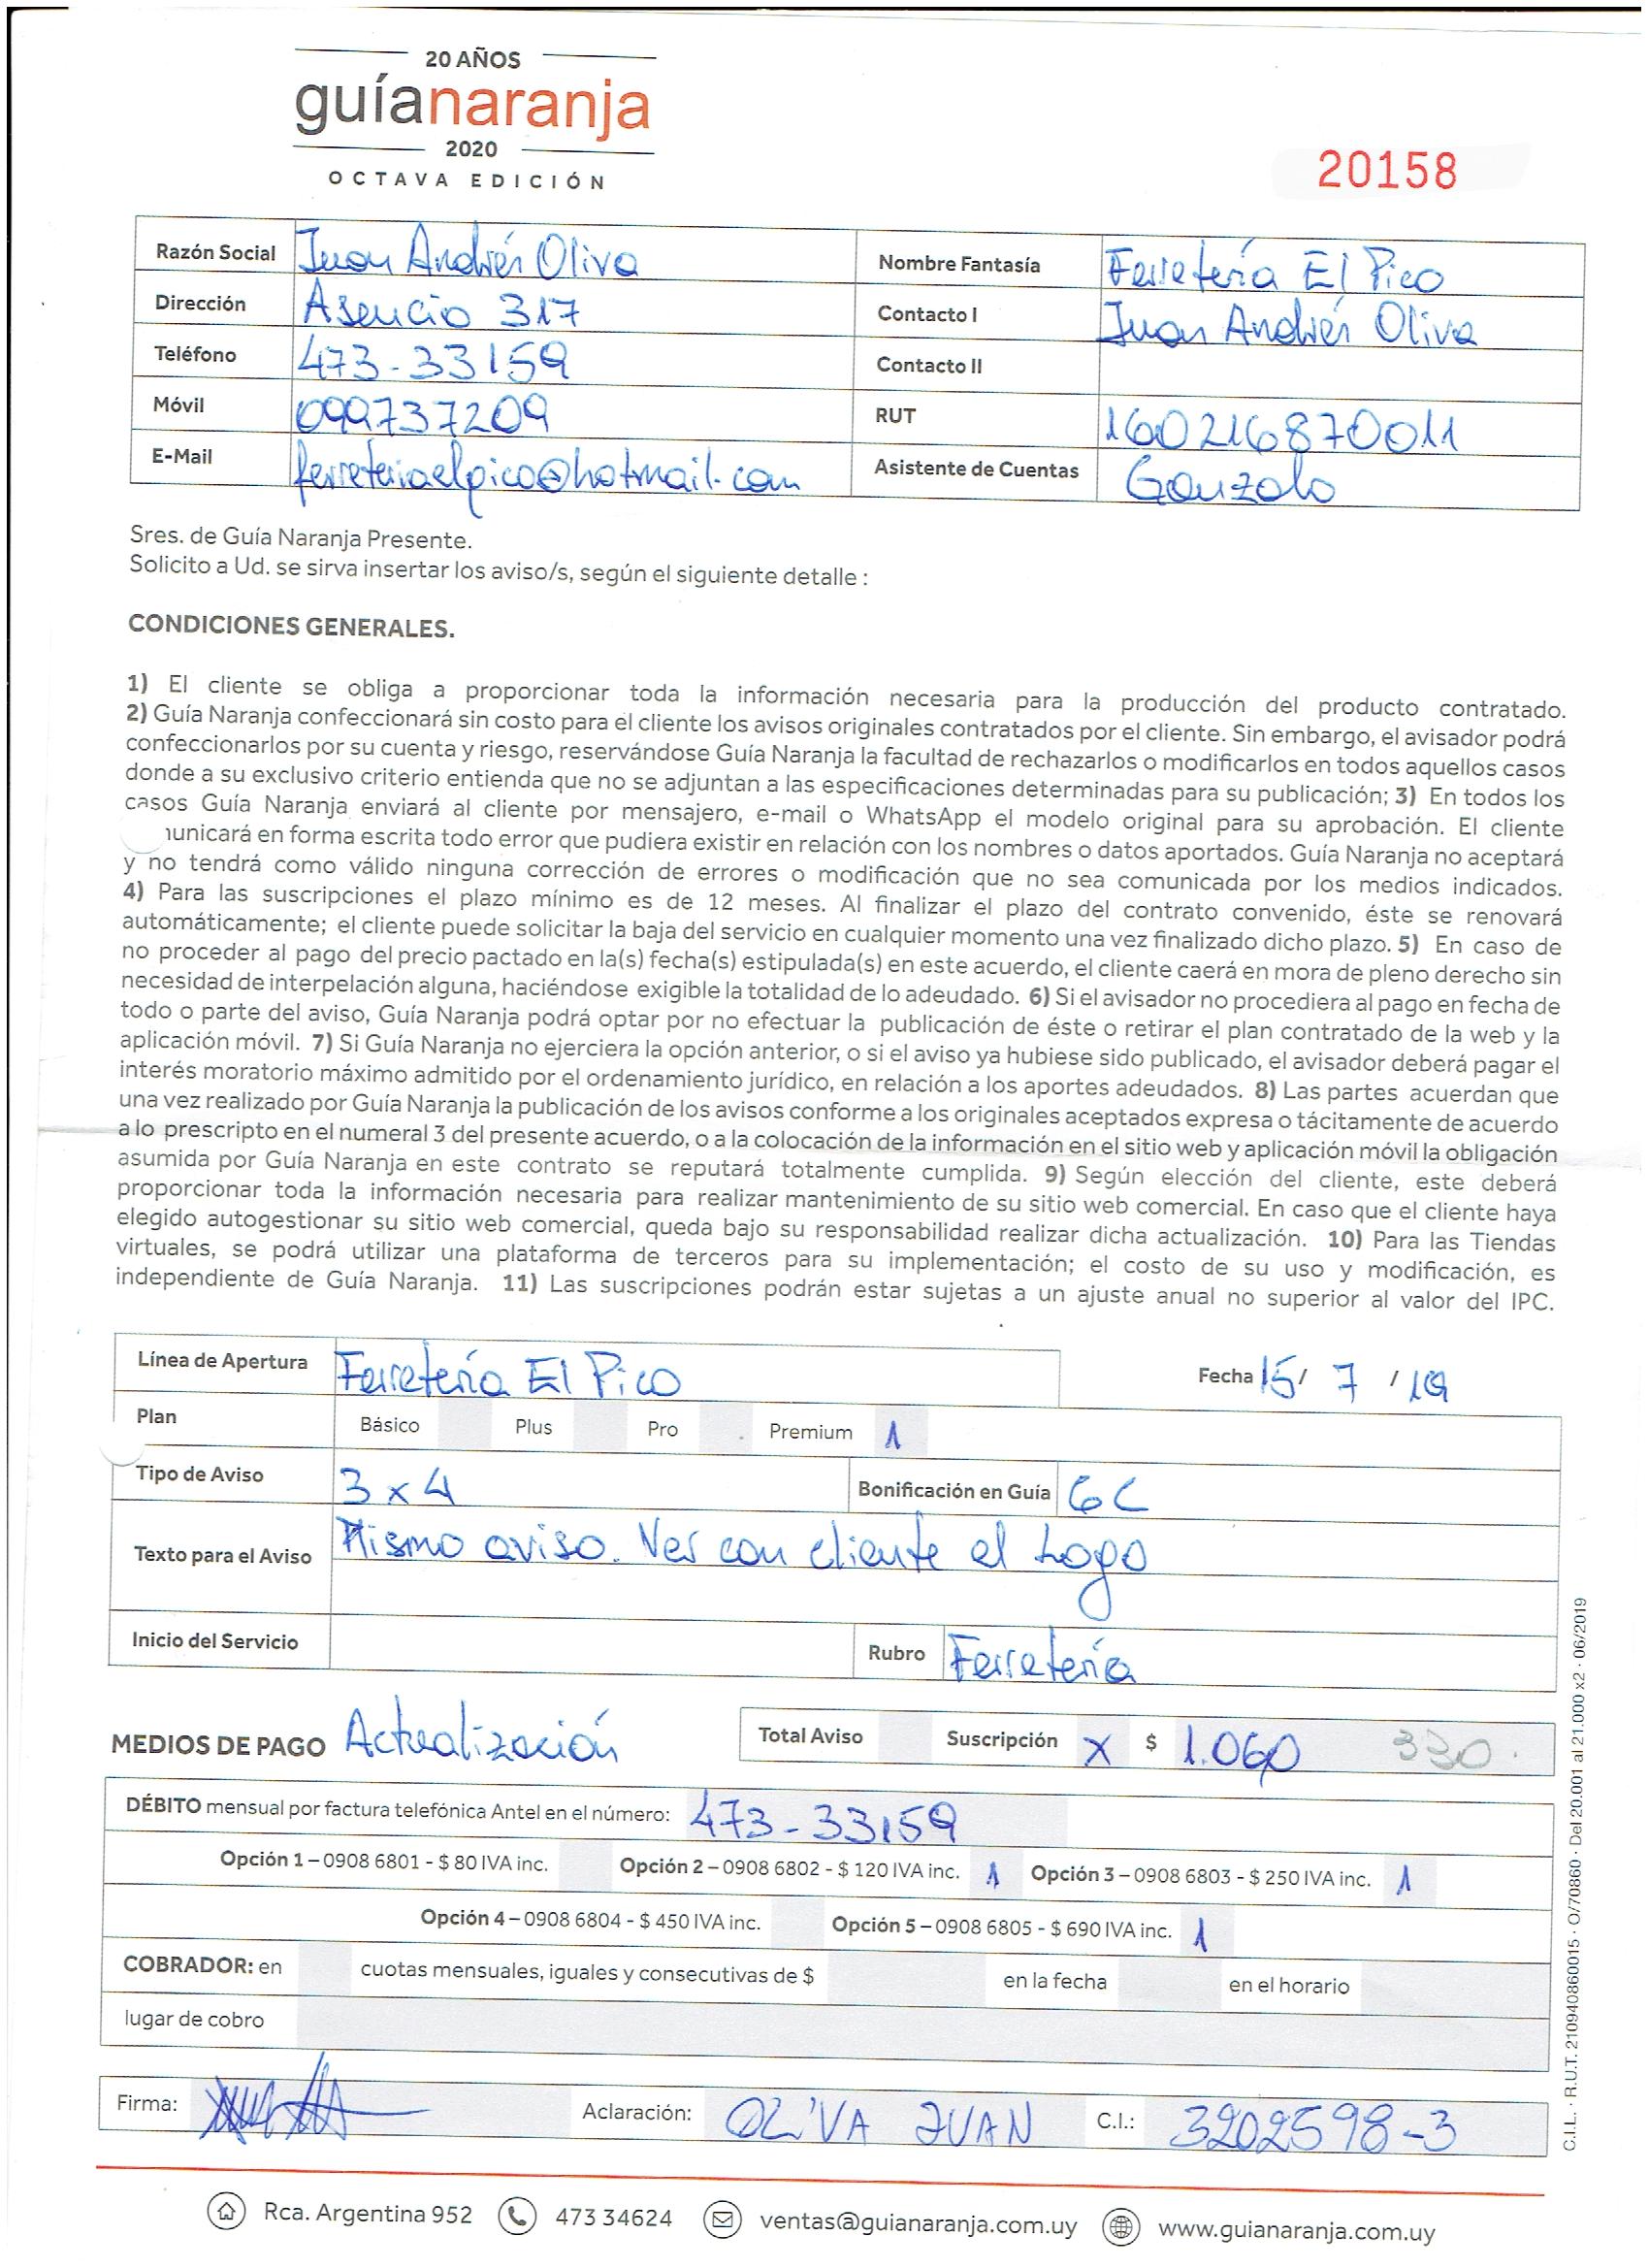 20 AÑOS
guíanaranja
2020
OCTAVA EDICIÓN
20158
Razón Social Juan Andrés Oliva Nombre Fantasía Ferretería El Pico
Dirección Asencio 317 Contacto I Juan Andrés Oliva
Teléfono 473-33159 Contacto II
Móvil 099737209 RUT 160216870011
E-Mail ferreteriaelpico@hotmail.com Asistente de Cuentas Gonzalo
Sres. de Guía Naranja Presente.
Solicito a Ud. se sirva insertar los aviso/s, según el siguiente detalle :
CONDICIONES GENERALES.
1) El cliente se obliga a proporcionar toda la información necesaria para la producción del producto contratado.
2) Guía Naranja confeccionará sin costo para el cliente los avisos originales contratados por el cliente. Sin embargo, el avisador podrá
confeccionarlos por su cuenta y riesgo, reservándose Guía Naranja la facultad de rechazarlos o modificarlos en todos aquellos casos
donde a su exclusivo criterio entienda que no se adjuntan a las especificaciones determinadas para su publicación; 3) En todos los
casos Guía Naranja enviará al cliente por mensajero, e-mail o WhatsApp el modelo original para su aprobación. El cliente
unicará en forma escrita todo error que pudiera existir en relación con los nombres o datos aportados. Guía Naranja no aceptará
y no tendrá como válido ninguna corrección de errores o modificación que no sea comunicada por los medios indicados.
4) Para las suscripciones el plazo mínimo es de 12 meses. Al finalizar el plazo del contrato convenido, éste se renovará
automáticamente; el cliente puede solicitar la baja del servicio en cualquier momento una vez finalizado dicho plazo. 5) En caso de
no proceder al pago del precio pactado en la(s) fecha(s) estipulada(s) en este acuerdo, el cliente caerá en mora de pleno derecho sin
necesidad de interpelación alguna, haciéndose exigible la totalidad de lo adeudado. 6) Si el avisador no procediera al pago en fecha de
todo o parte del aviso, Guía Naranja podrá optar por no efectuar la publicación de éste o retirar el plan contratado de la web y la
aplicación móvil. 7) Si Guía Naranja no ejerciera la opción anterior, o si el aviso ya hubiese sido publicado, el avisador deberá pagar el
interés moratorio máximo admitido por el ordenamiento jurídico, en relación a los aportes adeudados. 8) Las partes acuerdan que
una vez realizado por Guía Naranja la publicación de los avisos conforme a los originales aceptados expresa o tácitamente de acuerdo
a lo prescripto en el numeral 3 del presente acuerdo, o a la colocación de la información en el sitio web y aplicación móvil la obligación
asumida por Guía Naranja en este contrato se reputará totalmente cumplida. 9) Según elección del cliente, este deberá
proporcionar toda la información necesaria para realizar mantenimiento de su sitio web comercial. En caso que el cliente haya
elegido autogestionar su sitio web comercial, queda bajo su responsabilidad realizar dicha actualización. 10) Para las Tiendas
virtuales, se podrá utilizar una plataforma de terceros para su implementación; el costo de su uso y modificación, es
independiente de Guía Naranja. 11) Las suscripciones podrán estar sujetas a un ajuste anual no superior al valor del IPC.
Línea de Apertura Ferretería El Pico Fecha 15/ 7 / 19
Plan Básico Plus Pro Premium 1
Tipo de Aviso 3x4 Bonificación en Guía 6C
Texto para el Aviso Mismo aviso. Ver con cliente el Logo
Inicio del Servicio Rubro Ferretería
MEDIOS DE PAGO Actualización Total Aviso Suscripción X $ 1.060 330.
DÉBITO mensual por factura telefónica Antel en el número: 473-33159
Opción 1 – 0908 6801 - $ 80 IVA inc. Opción 2 – 0908 6802 - $ 120 IVA inc. 1 Opción 3 – 0908 6803 - $ 250 IVA inc. 1
Opción 4 – 0908 6804 - $ 450 IVA inc. Opción 5 – 0908 6805 - $ 690 IVA inc. 1
COBRADOR: en cuotas mensuales, iguales y consecutivas de $ en la fecha en el horario
lugar de cobro
Firma: Aclaración: OLIVA JUAN C.I.: 3202598-3
Rca. Argentina 952 473 34624 ventas@guianaranja.com.uy www.guianaranja.com.uy
C.I.L. · R.U.T. 210940860015 · O/70860 · Del 20.001 al 21.000 x2 · 06/2019